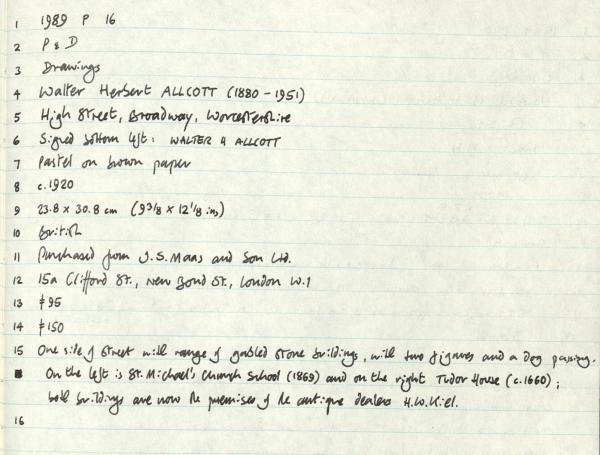 1 1989 P 16
2 P & D
3 Drawings
4 Walter Herbert ALLCOTT (1880 - 1951)
5 High Street, Broadway, Worcestershire
6 Signed bottom left: WALTER H ALLCOTT
7 Pastel on brown paper
8 c.1920
9 23.8 x 30.8 cm (9 3/8 x 12 1/8 ins)
10 British
11 Purchased from J.S. Maas and Son Ltd.
12 15a Clifford St., New Bond St., London W.1
13 £95
14 £150
15 One side of street with range of gabled stone buildings, with two figures and a dog passing.
On the left is St. Michael's Church School (1869) and on the right Tudor House (c.1660);
both buildings are now the premises of the antique dealers H.W. Kiel.
16